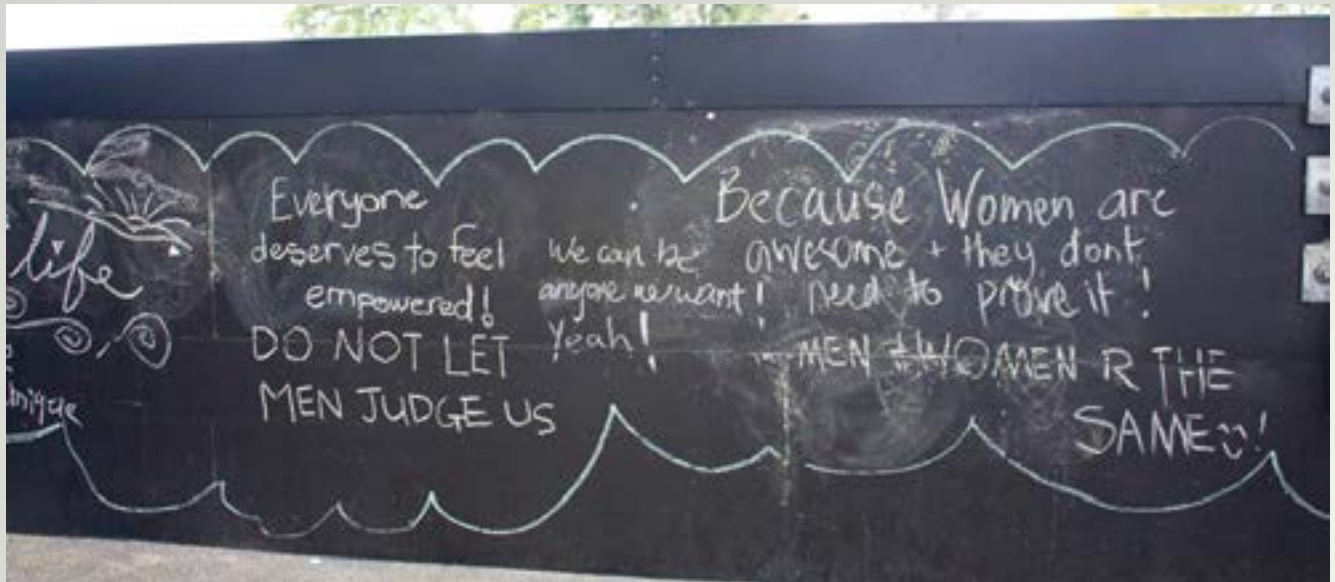 life
unique
Everyone
deserves to feel
empowered!
DO NOT LET
MEN JUDGE US
We can be
anyone we want!
Yeah!
Because Women are
awesome + they dont
need to prove it!
MEN + WOMEN R THE
SAME!